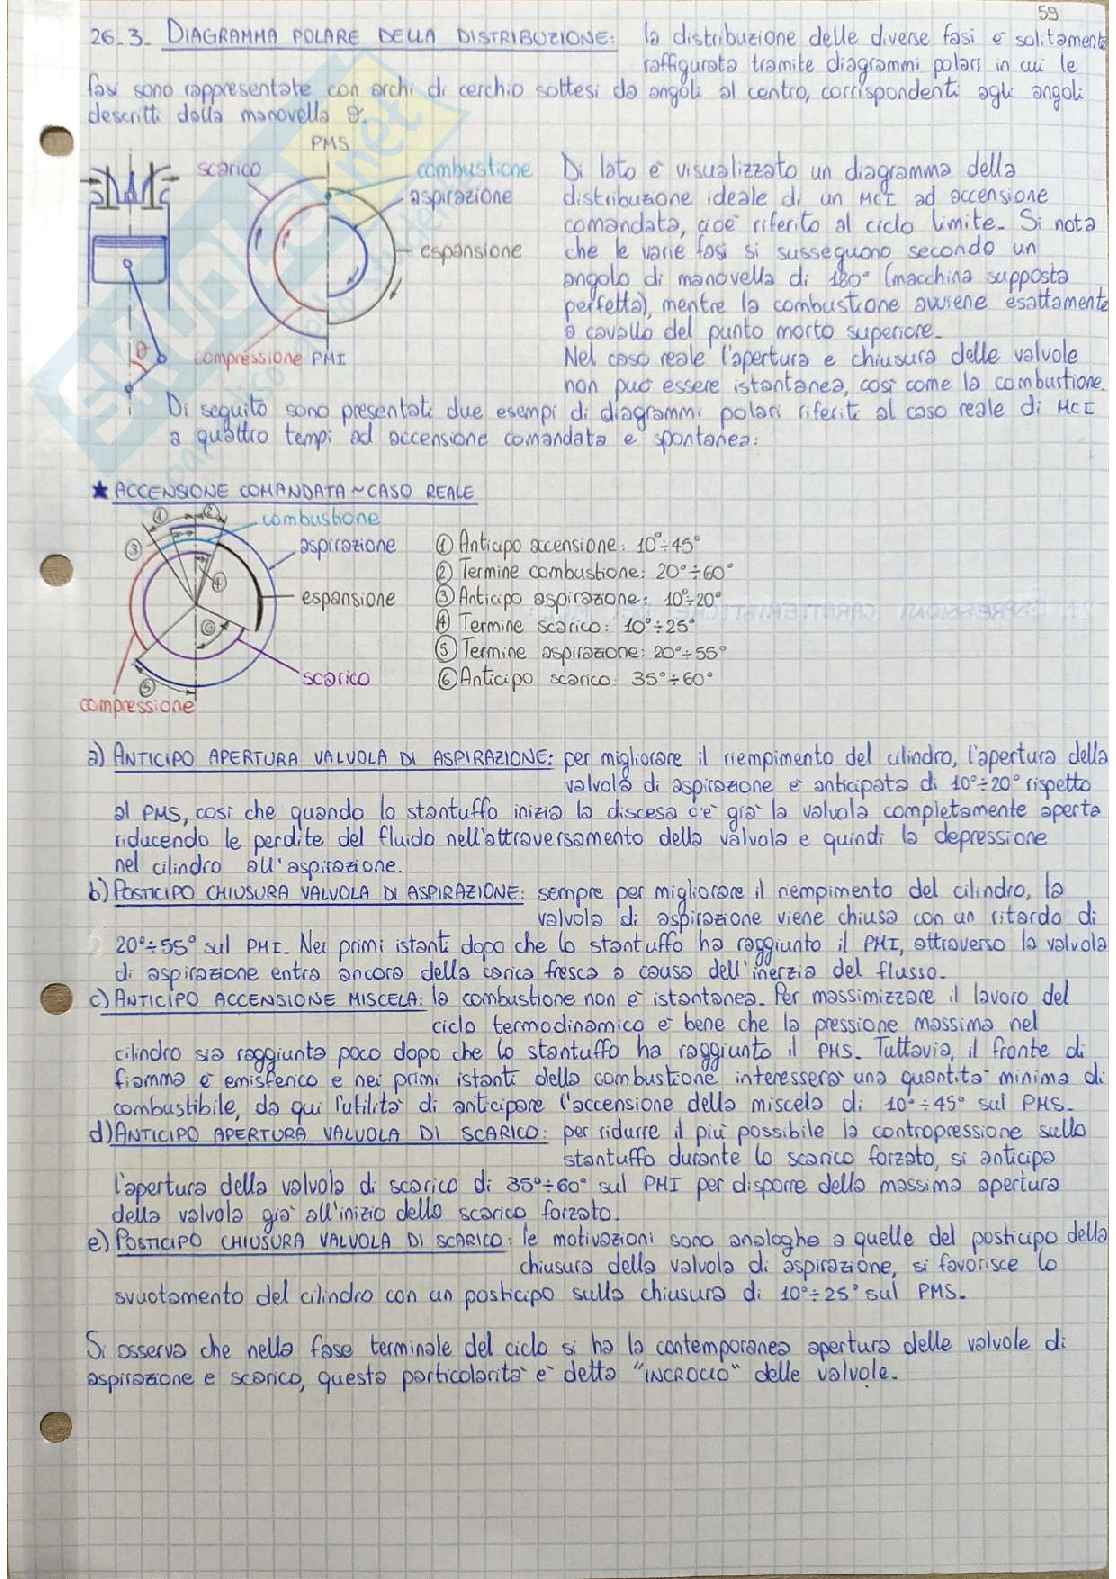 59
26.3. DIAGRAMMA POLARE DELLA DISTRIBUZIONE: la distribuzione delle diverse fasi è solitamente
raffigurata tramite diagrammi polari in cui le
fasi sono rappresentate con archi di cerchio sottesi da angoli al centro, corrispondenti agli angoli
descritti dalla manovella ϑ.
PMS
scarico
combustione
aspirazione
espansione
compressione PMI
S
C
ϑ
Di lato è visualizzato un diagramma della
distribuzione ideale di un MCI ad accensione
comandata, cioè riferito al ciclo limite. Si nota
che le varie fasi si susseguono secondo un
angolo di manovella di 180° (macchina supposta
perfetta), mentre la combustione avviene esattamente
a cavallo del punto morto superiore.
Nel caso reale l'apertura e chiusura delle valvole
non può essere istantanea, così come la combustione.
Di seguito sono presentati due esempi di diagrammi polari riferiti al caso reale di MCI
a quattro tempi ad accensione comandata e spontanea:
★ ACCENSIONE COMANDATA ~ CASO REALE
① ②
combustione
③
aspirazione
④
espansione
⑥
scarico
⑤
compressione
① Anticipo accensione: 10°÷45°
② Termine combustione: 20°÷60°
③ Anticipo aspirazione: 10°÷20°
④ Termine scarico: 10°÷25°
⑤ Termine aspirazione: 20°÷55°
⑥ Anticipo scarico: 35°÷60°
a) ANTICIPO APERTURA VALVOLA DI ASPIRAZIONE: per migliorare il riempimento del cilindro, l'apertura della
valvola di aspirazione è anticipata di 10°÷20° rispetto
al PMS, così che quando lo stantuffo inizia la discesa c'è già la valvola completamente aperta
riducendo le perdite del fluido nell'attraversamento della valvola e quindi la depressione
nel cilindro all'aspirazione.
b) POSTICIPO CHIUSURA VALVOLA DI ASPIRAZIONE: sempre per migliorare il riempimento del cilindro, la
valvola di aspirazione viene chiusa con un ritardo di
20°÷55° sul PMI. Nei primi istanti dopo che lo stantuffo ha raggiunto il PMI, attraverso la valvola
di aspirazione entra ancora della carica fresca a causa dell'inerzia del flusso.
c) ANTICIPO ACCENSIONE MISCELA: la combustione non è istantanea. Per massimizzare il lavoro del
ciclo termodinamico è bene che la pressione massima nel
cilindro sia raggiunta poco dopo che lo stantuffo ha raggiunto il PMS. Tuttavia, il fronte di
fiamma è emisferico e nei primi istanti della combustione interesserà una quantità minima di
combustibile, da qui l'utilità di anticipare l'accensione della miscela di 10°÷45° sul PMS.
d) ANTICIPO APERTURA VALVOLA DI SCARICO: per ridurre il più possibile la contropressione sullo
stantuffo durante lo scarico forzato, si anticipa
l'apertura della valvola di scarico di 35°÷60° sul PMI per disporre della massima apertura
della valvola già all'inizio dello scarico forzato.
e) POSTICIPO CHIUSURA VALVOLA DI SCARICO: le motivazioni sono analoghe a quelle del posticipo della
chiusura della valvola di aspirazione, si favorisce lo
svuotamento del cilindro con un posticipo sulla chiusura di 10°÷25° sul PMS.
Si osserva che nella fase terminale del ciclo si ha la contemporanea apertura delle valvole di
aspirazione e scarico, questa particolarità è detta "INCROCIO" delle valvole.